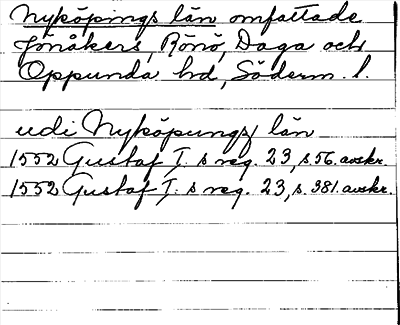 Nyköpings län omfattade
Jönåkers, Rönö, Daga och
Oppunda hd, Söderm. l.
udi Nyköpungz län
1552 Gustaf I: s reg. 23, s. 56. avskr.
1552 Gustaf I: s reg. 23, s. 381. avskr.